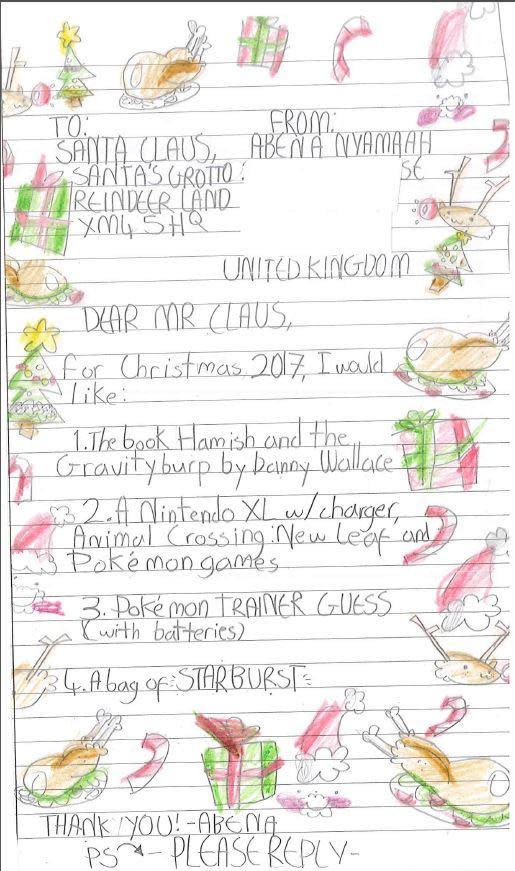 TO:
FROM:
SANTA CLAUS,
ABENA NYAMAAH
SANTA'S GROTTO:
SE
REINDEER LAND
XM4 5HQ
UNITED KINGDOM
DEAR MR CLAUS,
For Christmas 2017, I would
like:
1.The book Hamish and the
Gravityburp by Danny Wallace
2.A Nintendo XL w/charger,
Animal Crossing:New Leaf and
Pokémon games
3. Pokémon TRAINER GUESS
(with batteries)
4. A bag of STARBURST
THANK YOU! -ABENA
PS - PLEASE REPLY-